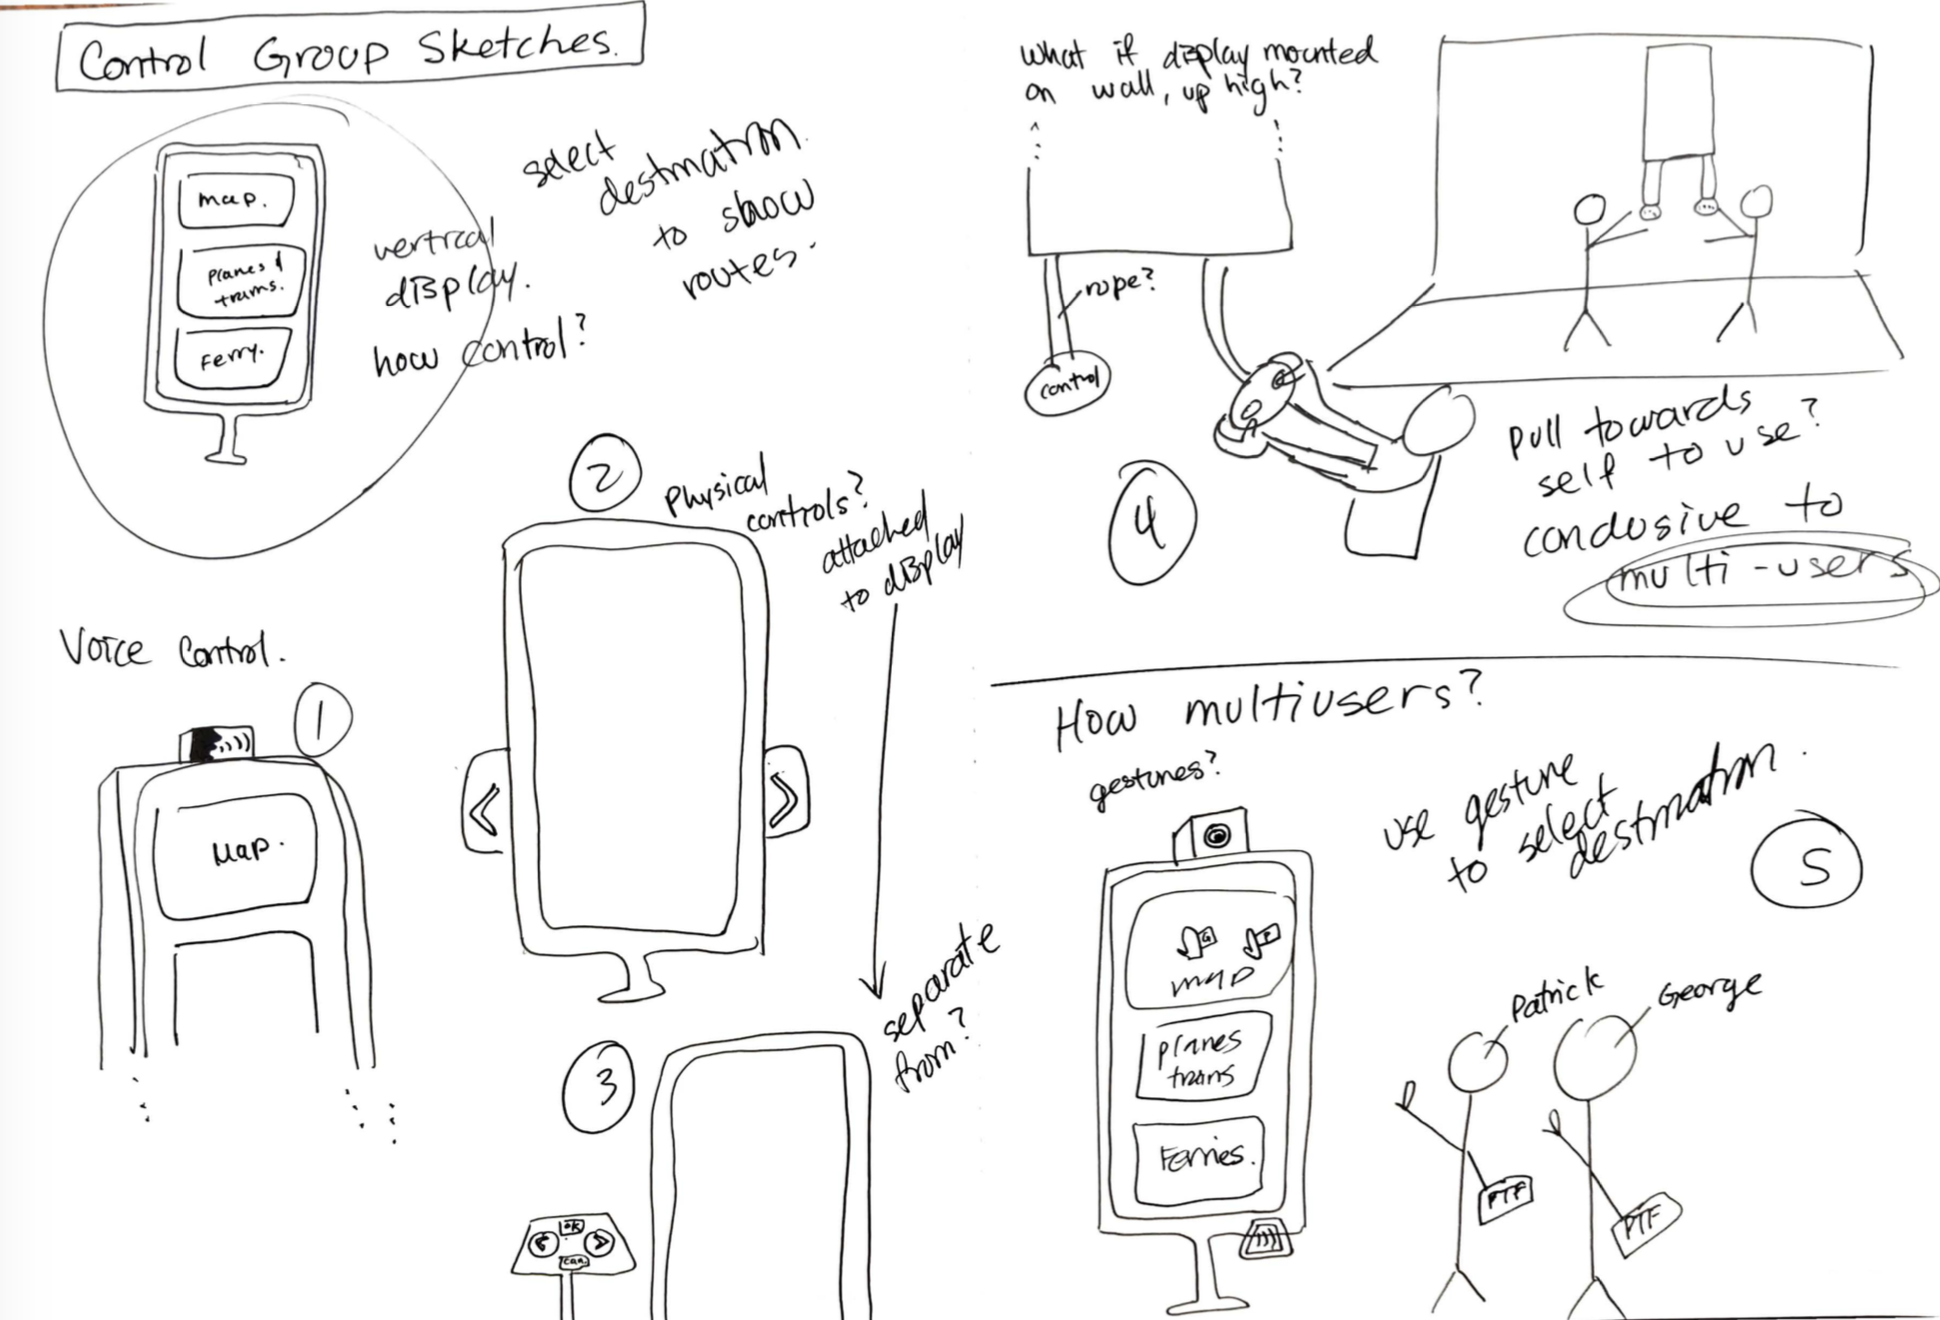 Control Group Sketches.
map.
planes &
trams.
Ferry.
vertical
display.
how control?
select
destination
to show
routes.
Voice Control.
1
Map.
2
Physical
controls?
attached
to display
<
>
separate
from?
3
ok
<
>
can.
What if display mounted
on wall, up high?
rope?
control
4
Pull towards
self to use?
condusive to
multi-users
How multiusers?
gestures?
use gesture
to select
destination.
5
G
P
map
planes
trams
Ferries.
Patrick
George
PTF
PTF